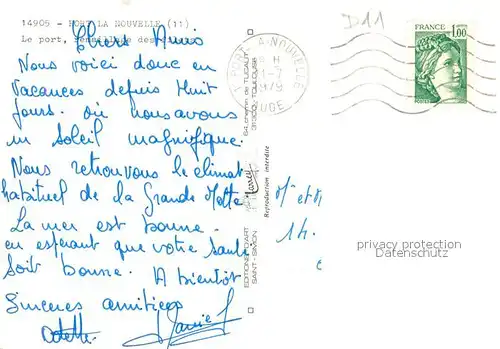 14905 - PORT LA NOUVELLE (11)
Le port,
Chers Amis
Nous voici donc en
vacances depuis huit
jours. où nous avons
un soleil magnifique.
Nous retrouvons le climat
habituel de la Grande Motte
La mer est bonne.
en espérant que votre santé
soit bonne. A bientôt
Sinceres amities
Odette
EDITIONS D'ART
SAINT-SIMON
64, chemin de TUCAUT
31300 TOULOUSE
Reproduction interdite
PORT-LA-NOUVELLE
1979
AUDE
D11
FRANCE
1,00
POSTES
M et M
14.
privacy protection
Datenschutz